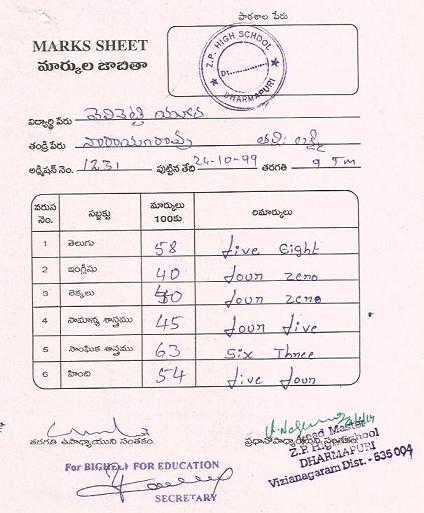 పాఠశాల పేరు
MARKS SHEET
మార్కుల జాబితా
Z.P. HIGH SCHOOL
Dt.
DHARMAPURI
విద్యార్థి పేరు
తండ్రి పేరు నారాయణరావు తల్లి: లక్ష్మి
అడ్మిషన్ నెం. 1231 పుట్టిన తేది 24-10-99 తరగతి 9 Tm
వరుస నెం. సబ్జెక్టు మార్కులు 100కు రిమార్కులు
1 తెలుగు 58 five Eight
2 ఇంగ్లీషు 40 four zero
3 లెక్కలు 40 four zero
4 సామాన్య శాస్త్రము 45 four five
5 సాంఘిక శాస్త్రము 63 Six Three
6 హింది 54 five four
తరగతి ఉపాధ్యాయుని సంతకం. ప్రధానోపాధ్యాయుని సంతకం.
Head Master
Z.P. High School
DHARMAPURI
Vizianagaram Dist. - 535 004
For BIGHELI FOR EDUCATION
SECRETARY